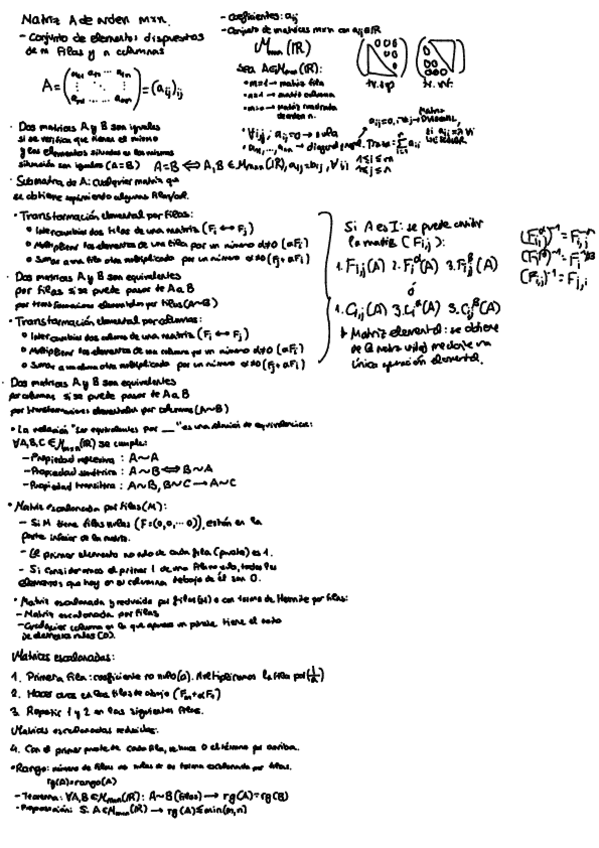 Matriz A de orden mxn.
- Conjunto de elementos dispuestos
de m filas y n columnas
- Coeficientes: aij
- Conjunto de matrices mxn con aij∈R
Mmxn(R)
Sea A∈Mmxn(R):
• m=1 → matriz fila
• n=1 → matriz columna
• m=n → matriz cuadrada
de orden n.
A = = (aij)ij
tr. sup
tr. inf.
• ∀i,j, aij=0 → nula
• Dos matrices A y B son iguales
si se verifica que tienen el mismo
y los elementos situados en las mismas
situación son iguales (A=B) A=B ⟺ A,B ∈ Mmxn(R), aij=bij, ∀ij 1≤i≤m 1≤j≤n
• Submatriz de A: cualquier matriz que
se obtiene suprimiendo algunas filas/col.
• Transformación elemental por filas:
• Intercambiar dos filas de una matriz (Fi ↔ Fj)
• Multiplicar los elementos de una fila por un número α≠0 (αFi)
• Sumar a una fila otra multiplicada por un número α≠0 (Fj + αFi)
• Dos matrices A y B son equivalentes
por filas si se puede pasar de A a B
por transformaciones elementales por filas (A∼B)
• Transformación elemental por columnas:
• Intercambiar dos columnas de una matriz (Fi ↔ Fj)
• Multiplicar los elementos de una columna por un número α≠0 (αFi)
• Sumar a una columna otra multiplicada por un número α≠0 (Fj + αFi)
• Dos matrices A y B son equivalentes
por columnas si se puede pasar de A a B
por transformaciones elementales por columnas (A∼B)
Si A es I: se puede cambiar
la matriz (Fi,j):
1. Fi,j(A) 2. Fiα(A) 3. Fijβ(A)
ó
1. Ci,j(A) 3. Ciα(A) 3. Cijβ(A)
Matriz elemental: se obtiene
de la matriz unidad mediante una
única operación elemental.
• La relación "ser equivalentes por __" es una relación de equivalencia:
∀A,B,C ∈ Mmxn(R) se cumple:
- Propiedad reflexiva: A∼A
- Propiedad simétrica: A∼B ⟺ B∼A
- Propiedad transitiva: A∼B, B∼C → A∼C
• Matriz escalonada por filas (M):
- Si M tiene filas nulas (F=(0,0,...0)), están en la
parte inferior de la matriz.
- El primer elemento no nulo de cada fila (pivote) es 1.
- Si consideramos el primer 1 de una fila no nula, todos los
elementos que hay en su columna debajo de él son 0.
• Matriz escalonada y reducida por filas o con forma de Hermite por filas:
- Matriz escalonada por filas
- Cualquier columna en la que aparece un pivote tiene el resto
de elementos nulos (0).
Matrices escalonadas:
1. Primera fila: coeficiente no nulo(a). Multiplicamos la fila por (1/a)
2. Hacer ceros en las filas de abajo (Fm+αF1)
3. Repetir 1 y 2 en las siguientes filas.
Matrices escalonadas reducidas:
4. Con el primer pivote de cada fila, se hace 0 el término por arriba.
• Rango: número de filas no nulas de su forma escalonada por filas.
rg(A)=rango(A)
- Teorema: ∀A,B∈Mmxn(R): A∼B (filas) → rg(A)=rg(B)
• Proposición: Si A∈Mmxn(R) → rg(A)≤min(m,n)